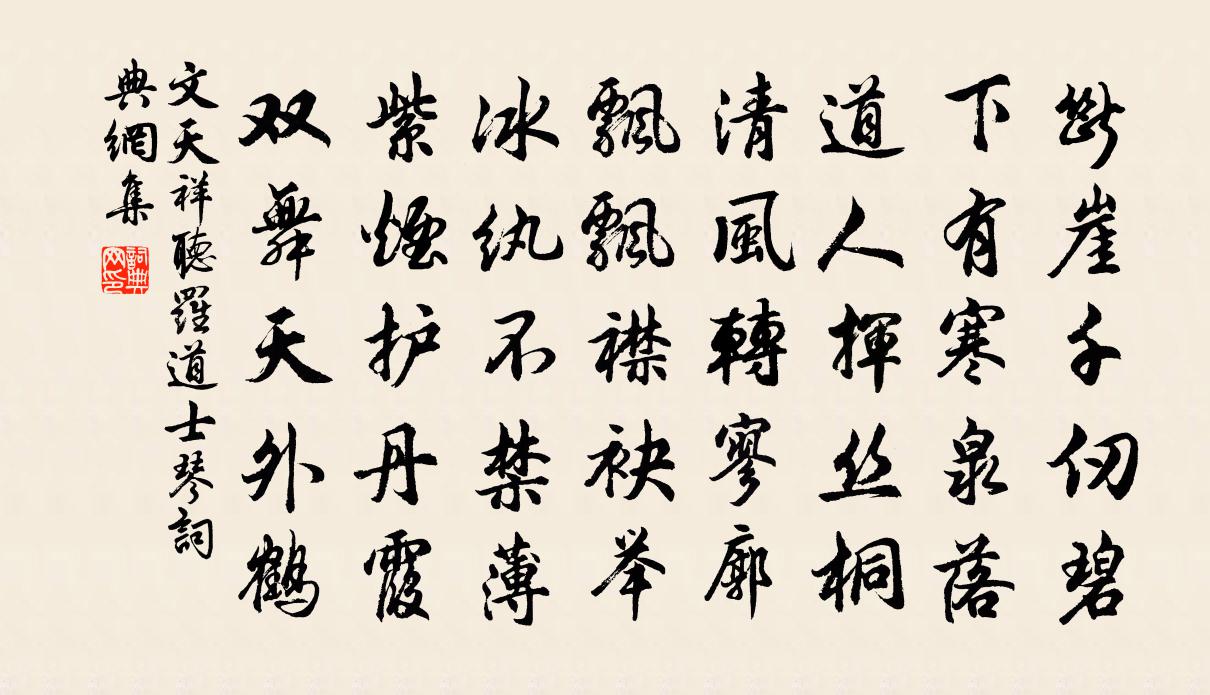 斷崖千仞碧
下有寒泉落
道人揮丝桐
清風轉寥廓
飄飄襟袂举
冰纨不禁薄
紫煙护丹霞
双舞天外鶴
文天祥聽羅道士琴詞
典網集
詞典网印